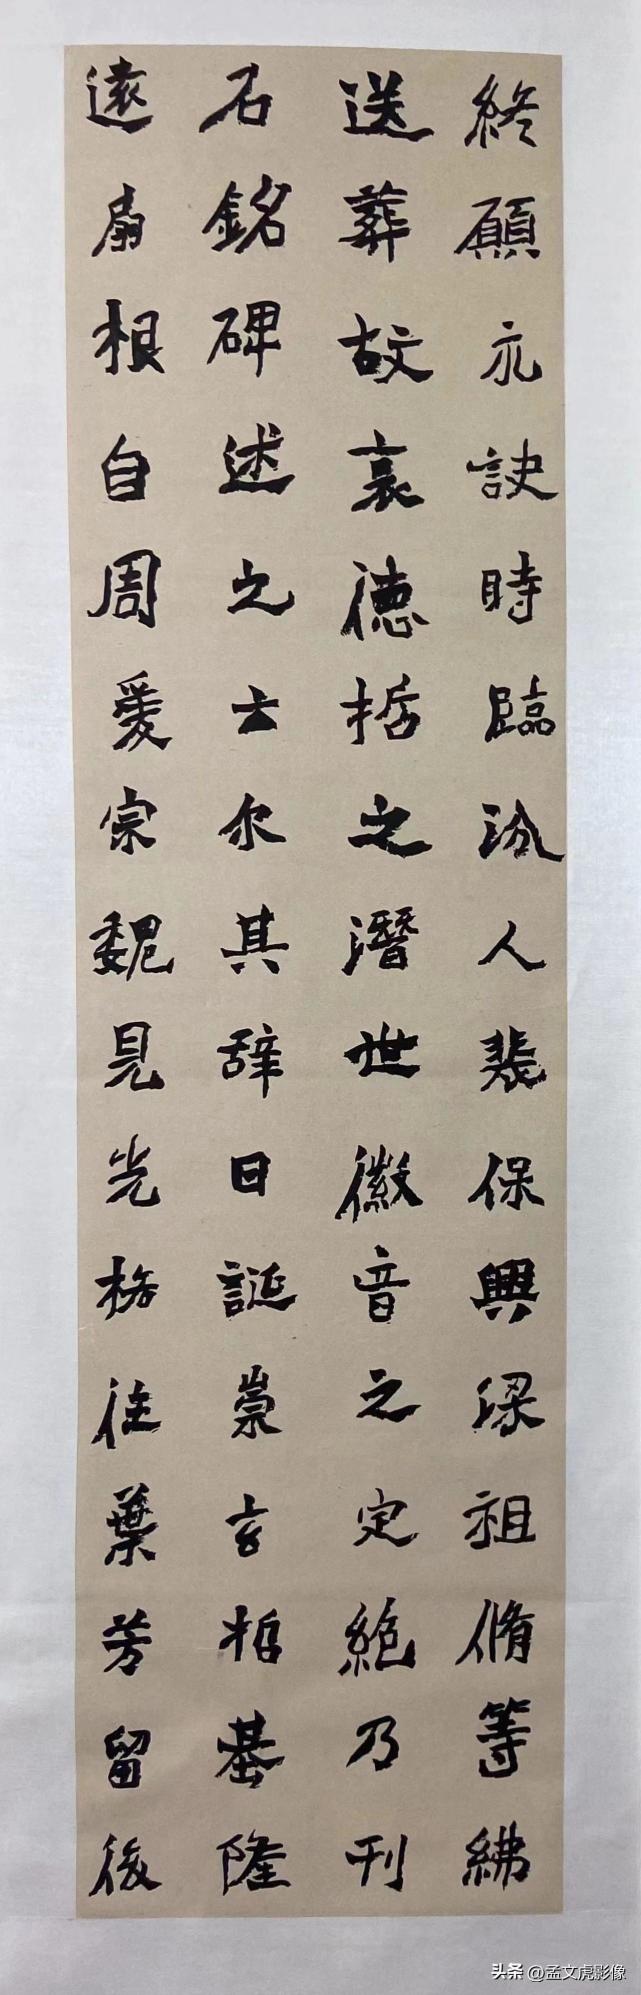 終願永訣時臨汾人裴保興梁祖脩等紼
送葬故哀德哲之潛世徽音之定絶乃刊
石銘碑述之士尓其辞曰誕崇玄哲基隆
遠扇根自周爰宗魏見光格往葉芳留後
头条 @孟文虎影像